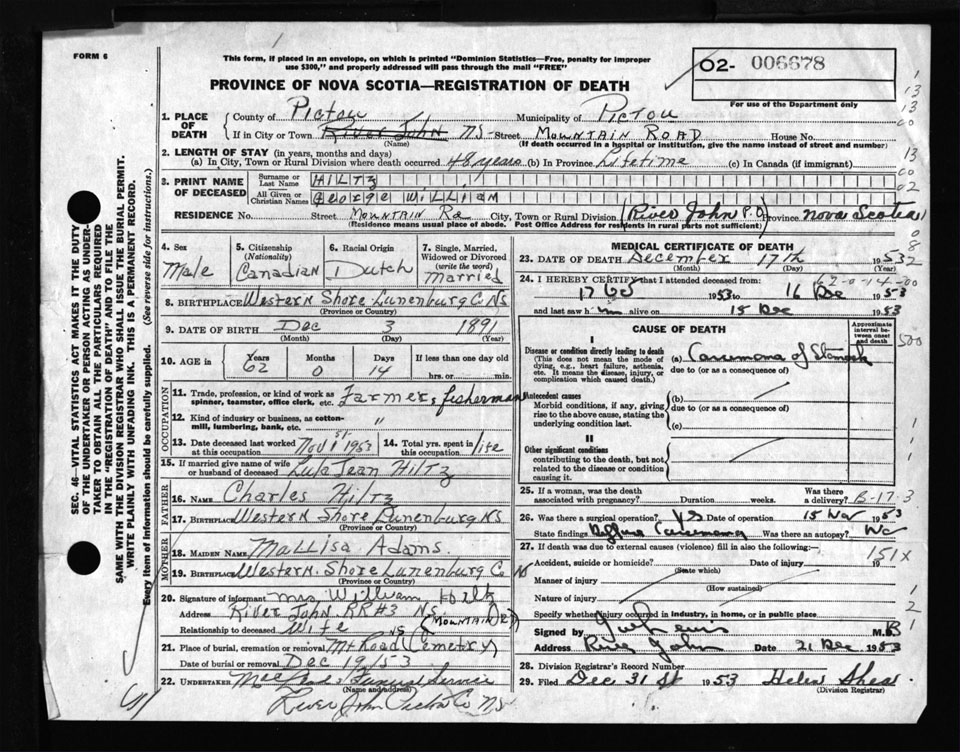 FORM 6
This form, if placed in an envelope, on which is printed "Dominion Statistics—Free, penalty for improper
use $300," and properly addressed will pass through the mail "FREE"
PROVINCE OF NOVA SCOTIA—REGISTRATION OF DEATH
O2- 006678
For use of the Department only
1. PLACE OF DEATH County of Pictou Municipality of Pictou
If in City or Town River John NS Street Mountain Road House No.
(Name) (If death occurred in a hospital or institution, give the name instead of street and number)
2. LENGTH OF STAY (in years, months and days)
(a) In City, Town or Rural Division where death occurred 48 years (b) In Province Lifetime (c) In Canada (if immigrant)
3. PRINT NAME OF DECEASED Surname or Last Name HILTZ
All Given or Christian Names George William
RESIDENCE No. Street Mountain Rd City, Town or Rural Division (River John P.O) Province Nova Scotia
(Residence means usual place of abode. Post Office Address for residents in rural parts not sufficient)
4. Sex Male
5. Citizenship (Nationality) Canadian
6. Racial Origin Dutch
7. Single, Married, Widowed or Divorced (write the word) Married
8. BIRTHPLACE Western Shore Lunenburg Co NS
(Province or Country)
9. DATE OF BIRTH Dec 3 1891
(Month) (Day) (Year)
10. AGE in Years 62 Months 0 Days 14 If less than one day old
hrs. or min.
OCCUPATION
11. Trade, profession, or kind of work as spinner, teamster, office clerk, etc. Farmer & fisherman
12. Kind of industry or business, as cotton-mill, lumbering, bank, etc. "
13. Date deceased last worked at this occupation Nov 1953
14. Total yrs. spent in this occupation life
15. If married give name of wife or husband of deceased Lula Jean Hiltz
FATHER
16. NAME Charles Hiltz
17. BIRTHPLACE Western Shore Lunenburg NS
(Province or Country)
MOTHER
18. MAIDEN NAME Mallisa Adams.
19. BIRTHPLACE Western. Shore Lunenburg Co NS
(Province or Country)
20. Signature of informant Mrs William Hiltz
Address River John RR#3 NS. (Mountain Rd)
Relationship to deceased Wife
21. Place of burial, cremation or removal Mt Road Cemetry NS
Date of burial or removal Dec 19/53
22. UNDERTAKER Funeral Service
(Name and address)
River John Pictou Co NS
MEDICAL CERTIFICATE OF DEATH
23. DATE OF DEATH December 17th 1953
(Month) (Day) (Year)
24. I HEREBY CERTIFY that I attended deceased from:
17 1953 to 16 Dec 1953
and last saw h im alive on 15 Dec 1953
CAUSE OF DEATH
Approximate interval between onset and death
I
Disease or condition directly leading to death (a) Carcinoma of Stomach
(This does not mean the mode of dying, e.g., heart failure, asthenia, etc. It means the disease, injury, or complication which caused death.)
due to (or as a consequence of)
Antecedent causes
Morbid conditions, if any, giving rise to the above cause, stating the underlying condition last.
(b)
due to (or as a consequence of)
(c)
II
Other significant conditions
contributing to the death, but not related to the disease or condition causing it.
25. If a woman, was the death associated with pregnancy? Duration weeks. Was there a delivery? B-17-3
26. Was there a surgical operation? Yes Date of operation 15 Nov 1953
State findings Carcinoma Was there an autopsy? No
27. If death was due to external causes (violence) fill in also the following:
Accident, suicide or homicide? Date of injury 19 151X
(State which)
Manner of injury
(How sustained)
Nature of injury
Specify whether injury occurred in industry, in home, or in public place
Signed by M.D.
Address River John Date 21 Dec 1953
28. Division Registrar's Record Number
29. Filed Dec 31 St 1953 Helen Shea
(Division Registrar)
SEC. 46—VITAL STATISTICS ACT MAKES IT THE DUTY
OF THE UNDERTAKER OR PERSON ACTING AS UNDER-
TAKER TO OBTAIN ALL THE PARTICULARS REQUIRED
IN THE "REGISTRATION OF DEATH" AND TO FILE THE
SAME WITH THE DIVISION REGISTRAR WHO SHALL ISSUE THE BURIAL PERMIT.
WRITE PLAINLY WITH UNFADING INK. THIS IS A PERMANENT RECORD.
Every item of information should be carefully supplied. (See reverse side for instructions.)